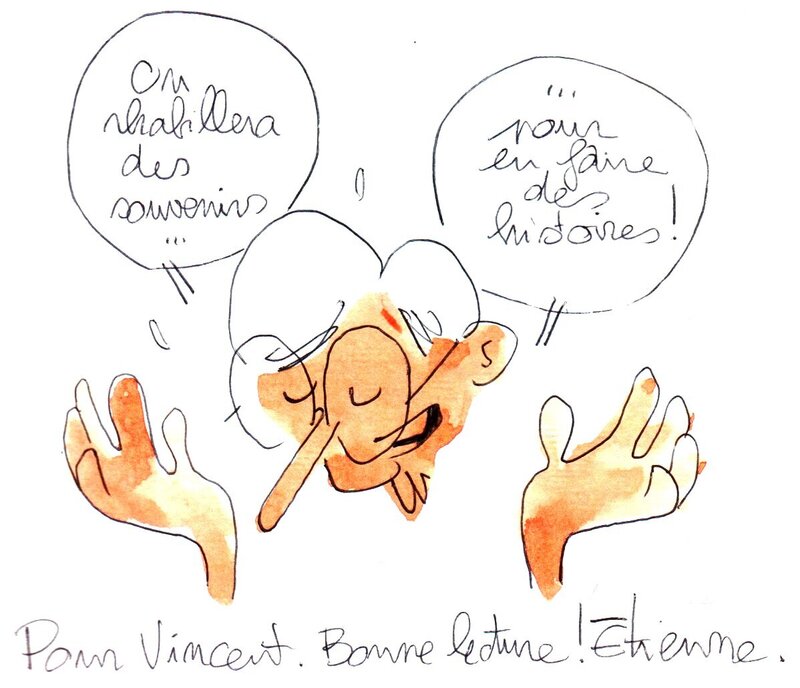 On
rhabillera
des
souvenirs
...
...
pour
en faire
des
histoires!
Pour Vincent. Bonne lecture! Étienne.